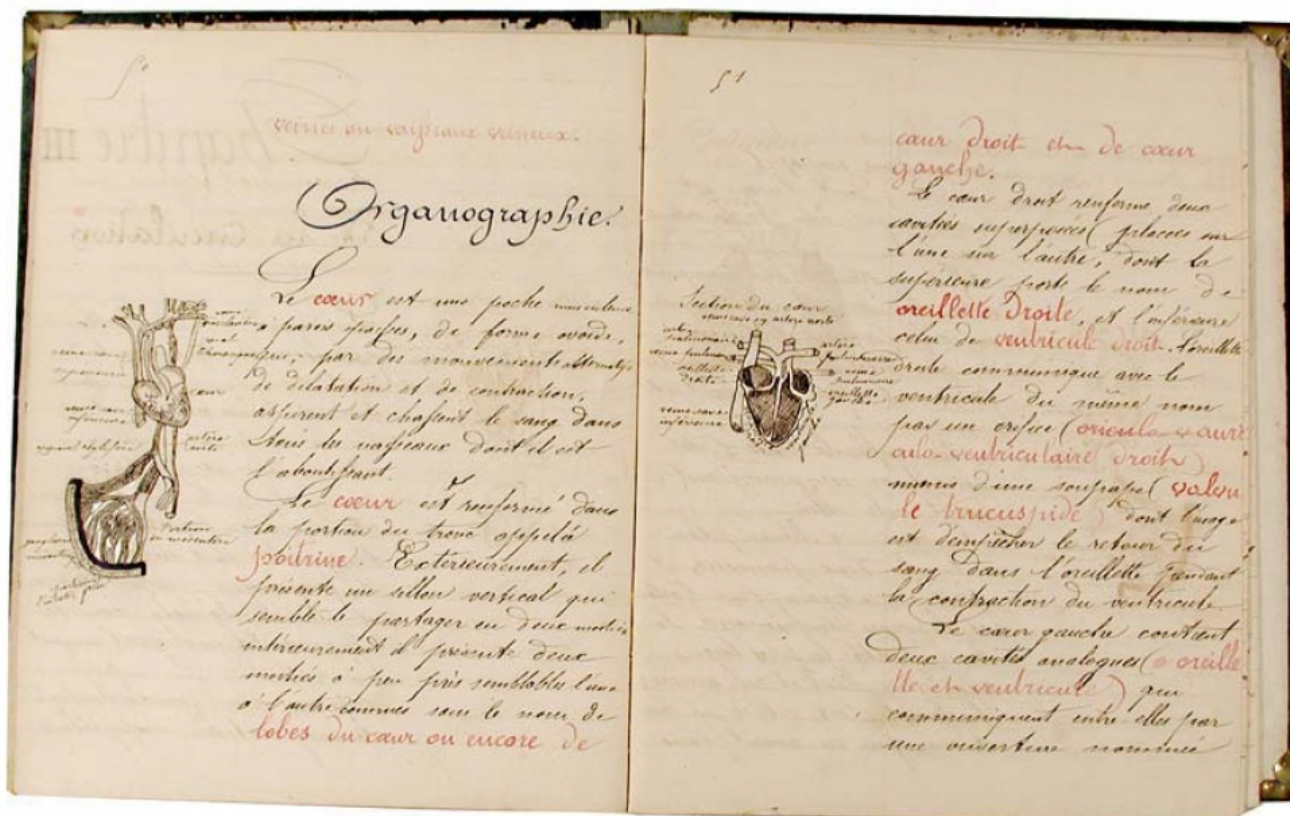 veines ou vaisseaux veineux.
Organographie.
Le cœur est une poche musculeuse
à parois épaisses, de forme ovoïde,
que, par des mouvements alternatifs
de dilatation et de contraction,
aspirent et chassent le sang dans
tous les vaisseaux dont il est
l'aboutissant.
Le cœur est renfermé dans
la portion du tronc appelé
poitrine. Extérieurement, il
présente un sillon vertical qui
semble le partager en deux moitiés
intérieurement il présente deux
moitiés à peu près semblables l'une
à l'autre connues sous le nom de
lobes du cœur ou encore de
veine cave
supérieure
cœur
veine cave
inférieure
artère
aorte
Portion
du mésentère
51
cœur droit et de cœur
gauche.
Le cœur droit renferme deux
cavités superposées (placées sur
l'une sur l'autre, dont la
supérieure porte le nom de
oreillette Droite, et l'inférieure
celui de ventricule droit. l'oreillette
droite communique avec le
ventricule du même nom
par un orifice (
culo-ventriculaire droit)
munie d'une soupape (valvu
le trucuspide) dont l'usage
est d'empêcher le retour du
sang dans l'oreillette pendant
la contraction du ventricule
Le cœur gauche contient
deux cavités analogues (oreille
tte et ventricule) qui
communiquent entre elles par
une ouverture nommée
Section du cœur
artère aorte
oreillette
droite
veine cave
inférieure
artère
pulmonaire
veine
pulmonaire
oreillette
gauche